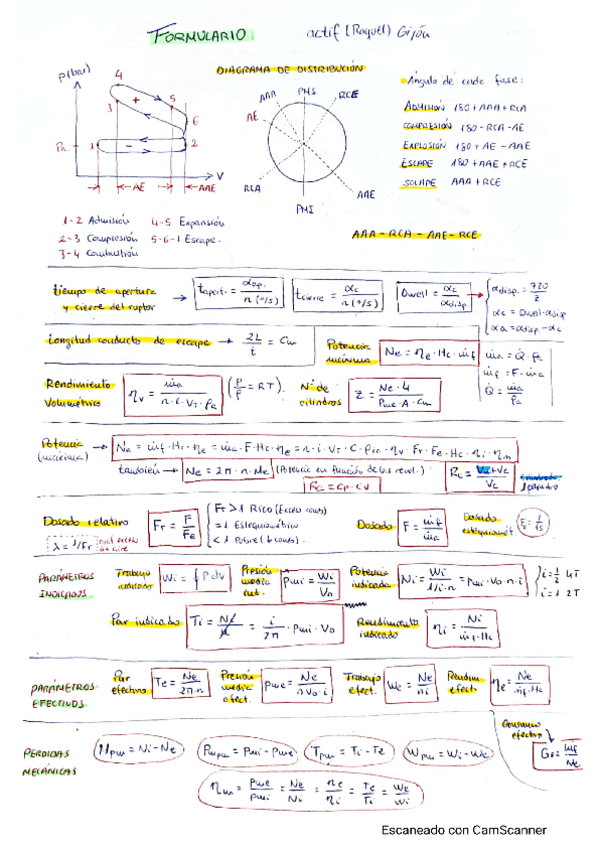 FORMULARIO
actif (Raquel) Gijón
DIAGRAMA DE DISTRIBUCIÓN
p(bar)
4
3
+
5
6
Pa
1
-
2
V
AE
AAE
1-2 Admisión 4-5 Expansión
2-3 Compresión 5-6-1 Escape.
3-4 Combustión
AAA
PMS
RCE
AE
RCA
AAE
PMI
Ángulo de cada fase:
ADMISIÓN 180+AAA+RCA
COMPRESIÓN 180-RCA-AE
EXPLOSIÓN 180+AE-AAE
ESCAPE 180+AAE+RCE
SOLAPE AAA+RCE
AAA-RCA-AAE-RCE
tiempo de apertura y cierre del ruptor → t apert. = αap. / n(º/s)
t cierre = αc / n(º/s)
Dwell = αc / αdisp
αdisp = 720/z
αc = Dwell·αdisp
αa = αdisp-αc
Longitud conducto de escape → 2L/t = Cm
Potencia máxima Ne = ηe·Hc·ṁf
ṁa = Q̇·ρa
ṁf = F·ṁa
Q̇ = ṁa/ρa
Rendimiento Volumétrico ηv = ṁa / n·i·VT·ρa (P/ρ = RT).
Nº de cilindros z = Ne·4 / pme·A·Cm
Potencia (máxima) → Ne = ṁf·Hc·ηe = ṁa·F·Hc·ηe = n·i·VT·C·ρa·ηv·Fr·Fe·Hc·ηi·ηm
también → Ne = 2π·n·Me (Potencia en función de las revol.)
Rc = Vd+Vc / Vc
Rc = Cp-Cv
Dosado relativo Fr = F/Fe
Fr>1 Rico (Exceso comb)
=1 Estequiométrico
<1 Pobre (↓comb).
λ = 1/Fr
Dosado F = ṁf/ṁa
Dosado estequiomét
PARÁMETROS INDICADOS
Trabajo indicado Wi = ∮ P dv
Presión media ind. pmi = Wi/Vo
Potencia indicada Ni = Wi / 1/i·n = pmi·Vo·n·i
i=1/2 4T
i=1 2T
Par indicado Ti = i/2π · pmi·Vo
Rendimiento indicado ηi = Ni / ṁf·Hc
PARÁMETROS EFECTIVOS
Par efectivo Te = Ne / 2π·n
Presión media efect. pme = Ne / n Vo·i
Trabajo efect. We = Ne / ni
Rendim efect. ηe = Ne / ṁf·Hc
Consumo efectivo
Ge = ṁf/Ne
PÉRDIDAS MECÁNICAS
Npm = Ni-Ne
Ppm = pmi-pme
Tpm = Ti-Te
Wpm = Wi-We
ηm = pme/pmi = Ne/Ni = ηe/ηi = Te/Ti = We/Wi
Escaneado con CamScanner